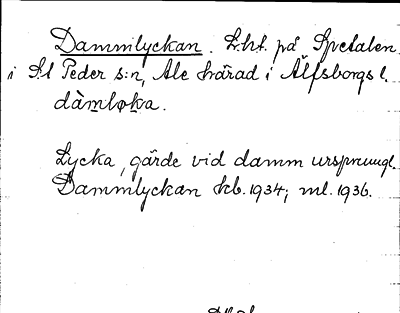 Dammlyckan. Lht. på Spetalen
i St Peder s:n, Ale härad i Älfsborgs l.
dàmløka.
Lycka, gärde vid damm ursprungl.
Dammlyckan kb. 1934; ml. 1936.